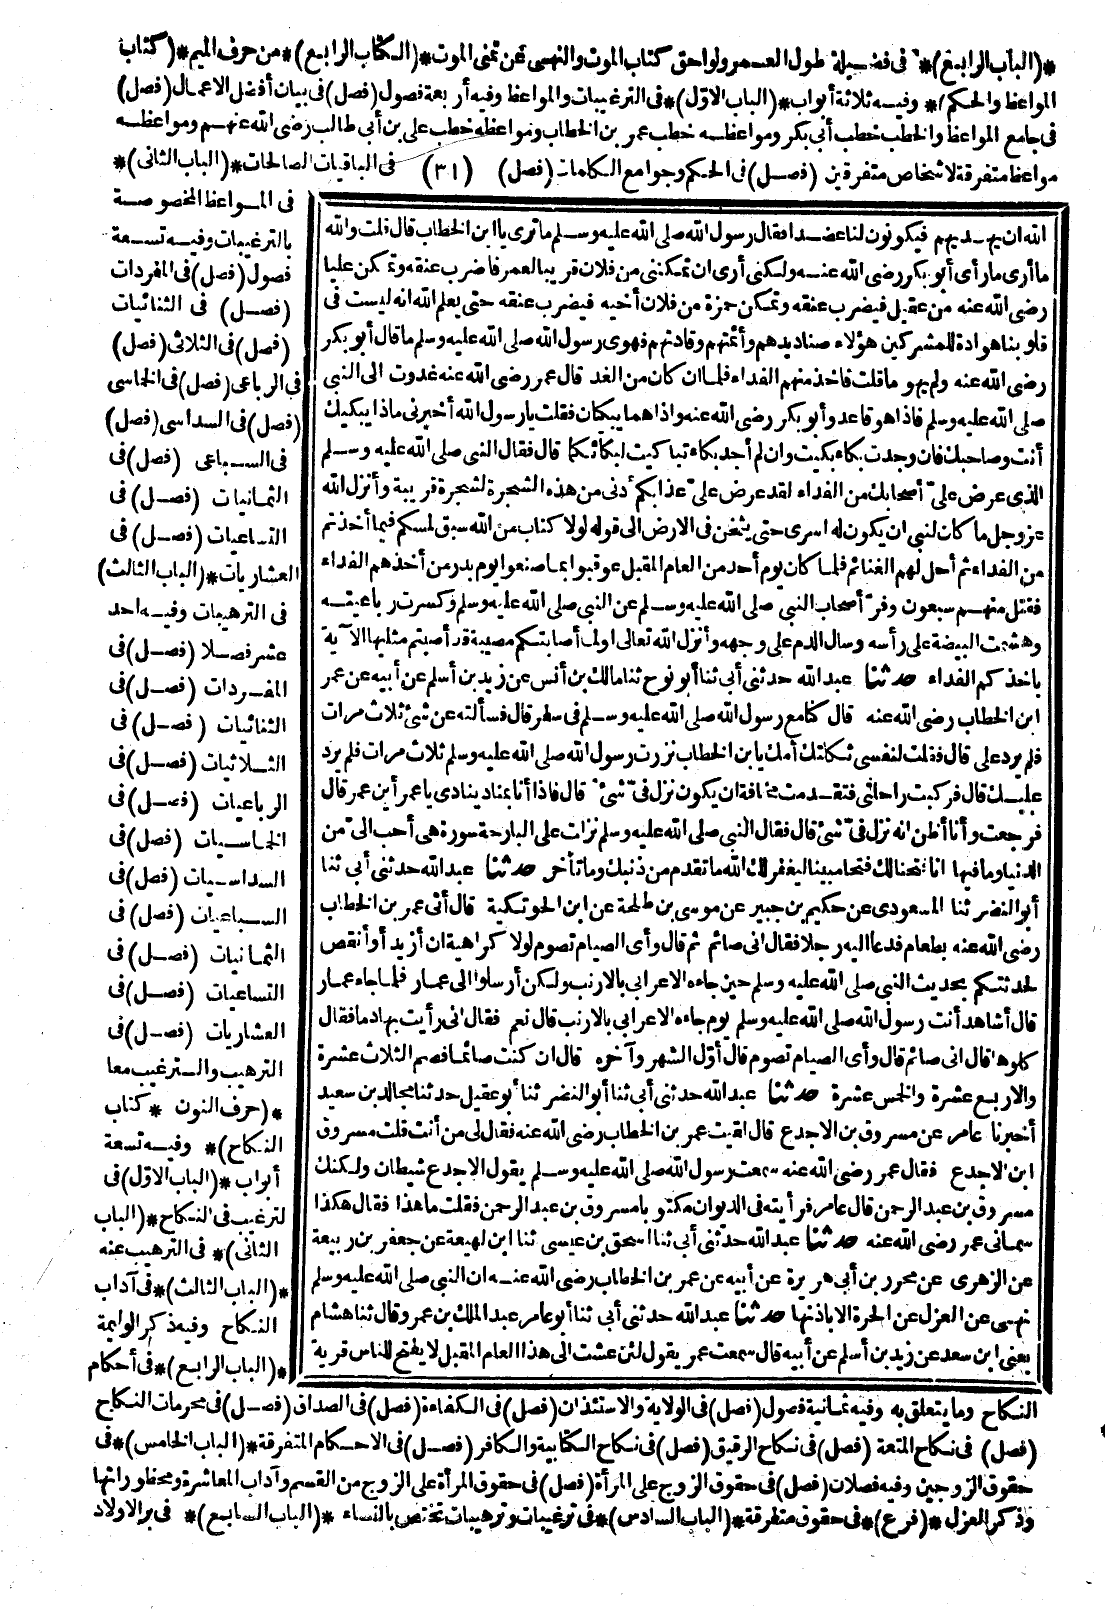 *(الباب الرابع)* فى فضيلة طول العمر ولواحق كتاب الموت والنهى عن تمنى الموت *(الكتاب الرابع)* من حرف الميم *(كتاب
المواعظ والحكم)* وفيه ثلاثة أبواب *(الباب الاول)* فى الترغيبات والمواعظ وفيه أربعة فصول (فصل) فى بيان أفضل الاعمال (فصل)
فى جامع المواعظ والخطب خطب أبى بكر ومواعظه خطب عمر بن الخطاب ومواعظه خطب على بن أبى طالب رضى الله عنهم ومواعظه
مواعظ متفرقة لاشخاص متفرقين (فصل) فى الحكم وجوامع الكلمات (فصل) (٣١) فى الباقيات الصالحات *(الباب الثانى)*
فى المواعظ المخصوصة
بالترغيبات وفيه تسعة
فصول (فصل) فى المفردات
(فصل) فى الثنائيات
(فصل) فى الثلاثى (فصل)
فى الرباعى (فصل) فى الخماسى
(فصل) فى السداسى (فصل)
فى السباعى (فصل) فى
الثمانيات (فصل) فى
التساعيات (فصل) فى
العشاريات *(الباب الثالث)
فى الترهيبات وفيه احد
عشر فصلا (فصل) فى
المفردات (فصل) فى
الثنائيات (فصل) فى
الثلاثيات (فصل) فى
الرباعيات (فصل) فى
الخماسيات (فصل) فى
السداسيات (فصل) فى
السباعيات (فصل) فى
الثمانيات (فصل) فى
التساعيات (فصل) فى
العشاريات (فصل) فى
الترهيب والترغيب معا
*(حرف النون * كتاب
النكاح)* وفيه تسعة
أبواب *(الباب الاول) فى
لترغيب فى النكاح *(الباب
الثانى)* فى الترهيب عنه
*(الباب الثالث)* فى آداب
النكاح وفيه ذكر الوليمة
*(الباب الرابع)* فى أحكام
الله ان يهديهم فيكونون لنا عضدا فقال رسول الله صلى الله عليه وسلم ما ترى يا ابن الخطاب قال قلت والله
ما أرى ما رأى أبو بكر رضى الله عنه ولكنى أرى ان تمكننى من فلان قريبا لعمر فاضرب عنقه وتمكن عليا
رضى الله عنه من عقيل فيضرب عنقه وتمكن حمزة من فلان أخيه فيضرب عنقه حتى يعلم الله انه ليست فى
قلوبنا هوادة للمشركين هؤلاء صناديدهم وأئمتهم وقادتهم فهوى رسول الله صلى الله عليه وسلم ما قال أبو بكر
رضى الله عنه ولم يهو ما قلت فاخذ منهم الفداء فلما ان كان من الغد قال عمر رضى الله عنه غدوت الى النبى
صلى الله عليه وسلم فاذا هو قاعد وأبو بكر رضى الله عنه واذا هما يبكيان فقلت يا رسول الله أخبرنى ماذا يبكيك
أنت وصاحبك فان وجدت بكاء بكيت وان لم أجد بكاء تباكيت لبكائكما قال فقال النبى صلى الله عليه وسلم
الذى عرض علىّ أصحابك من الفداء لقد عرض علىّ عذابكم أدنى من هذه الشجرة لشجرة قريبة وأنزل الله
عز وجل ما كان لنبى ان يكون له اسرى حتى يثخن فى الارض الى قوله لولا كتاب من الله سبق لمسكم فيما أخذتم
من الفداء ثم أحل لهم الغنائم فلما كان يوم أحد من العام المقبل عوقبوا بما صنعوا يوم بدر من أخذهم الفداء
فقتل منهم سبعون وفرّ أصحاب النبى صلى الله عليه وسلم عن النبى صلى الله عليه وسلم وكسرت رباعيته
وهشمت البيضة على رأسه وسال الدم على وجهه وأنزل الله تعالى اولما أصابتكم مصيبة قد أصبتم مثليها الآية
باخذكم الفداء حدثنا عبد الله حدثنى أبى ثنا أبو نوح ثنا مالك بن أنس عن زيد بن أسلم عن أبيه عن عمر
ابن الخطاب رضى الله عنه قال كنا مع رسول الله صلى الله عليه وسلم فى سفر قال فسألته عن شئ ثلاث مرات
فلم يرد على قال فقلت لنفسى ثكلتك أمك يا ابن الخطاب نزرت رسول الله صلى الله عليه وسلم ثلاث مرات فلم يرد
عليك قال فركبت راحلتى فتقدمت مخافة ان يكون نزل فىّ شئ قال فاذا أنا بمناد ينادى يا عمر أين عمر قال
فرجعت وأنا أظن انه نزل فىّ شئ قال فقال النبى صلى الله عليه وسلم نزلت على البارحة سورة هى أحب الىّ من
الدنيا وما فيها انا فتحنا لك فتحا مبينا ليغفر لك الله ما تقدم من ذنبك وما تأخر حدثنا عبد الله حدثنى أبى ثنا
أبو النضر ثنا المسعودى عن حكيم بن جبير عن موسى بن طلحة عن ابن الحوتكية قال أتى عمر بن الخطاب
رضى الله عنه بطعام فدعا اليه رجلا فقال انى صائم ثم قال وأى الصيام تصوم لولا كراهية ان أزيد أو أنقص
لحدثتكم بحديث النبى صلى الله عليه وسلم حين جاءه الاعرابى بالارنب ولكن أرسلوا الى عمار فلما جاء عمار
قال أشاهد أنت رسول الله صلى الله عليه وسلم يوم جاءه الاعرابى بالارنب قال نعم فقال انى رأيت بها دما فقال
كلوها قال انى صائم قال وأى الصيام تصوم قال أوّل الشهر وآخره قال ان كنت صائما فصم الثلاث عشرة
والاربع عشرة والخمس عشرة حدثنا عبد الله حدثنى أبى ثنا أبو النضر ثنا أبو عقيل حدثنا مجالد بن سعيد
أخبرنا عامر عن مسروق بن الاجدع قال لقيت عمر بن الخطاب رضى الله عنه فقال لى من أنت قلت مسروق
ابن الاجدع فقال عمر رضى الله عنه سمعت رسول الله صلى الله عليه وسلم يقول الاجدع شيطان ولكنك
مسروق بن عبد الرحمن قال عامر فرأيته فى الديوان مكتوبا مسروق بن عبد الرحمن فقلت ما هذا فقال هكذا
سمانى عمر رضى الله عنه حدثنا عبد الله حدثنى أبى ثنا اسحق بن عيسى ثنا ابن لهيعة عن جعفر بن ربيعة
عن الزهرى عن محرر بن أبى هريرة عن أبيه عن عمر بن الخطاب رضى الله عنه ان النبى صلى الله عليه وسلم
نهى عن العزل عن الحرة الا باذنها حدثنا عبد الله حدثنى أبى ثنا أبو عامر عبد الملك بن عمرو قال ثنا هشام
يعنى ابن سعد عن زيد بن أسلم عن أبيه قال سمعت عمر يقول لئن عشت الى هذا العام المقبل لا يفتح للناس قرية
النكاح وما يتعلق به وفيه ثمانية فصول (فصل) فى الولاية والاستئذان (فصل) فى الكفاءة (فصل) فى الصداق (فصل) فى محرمات النكاح
(فصل) فى نكاح المتعة (فصل) فى نكاح الرقيق (فصل) فى نكاح الكتابية والكافر (فصل) فى الاحكام المتفرقة *(الباب الخامس)* فى
حقوق الزوجين وفيه فصلان (فصل) فى حقوق الزوج على المرأة (فصل) فى حقوق المرأة على الزوج من القسم وآداب المعاشرة ومحظوراتها
وذكر العزل *(فرع)* فى حقوق متفرقة *(الباب السادس)* فى ترغيبات وترهيبات تختص بالنساء *(الباب السابع)* فى بر الاولاد